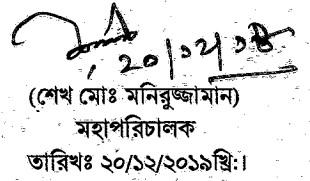 ২০/১২/১৯
(শেখ মোঃ মনিরুজ্জামান)
মহাপরিচালক
তারিখঃ ২০/১২/২০১৯খ্রি:।